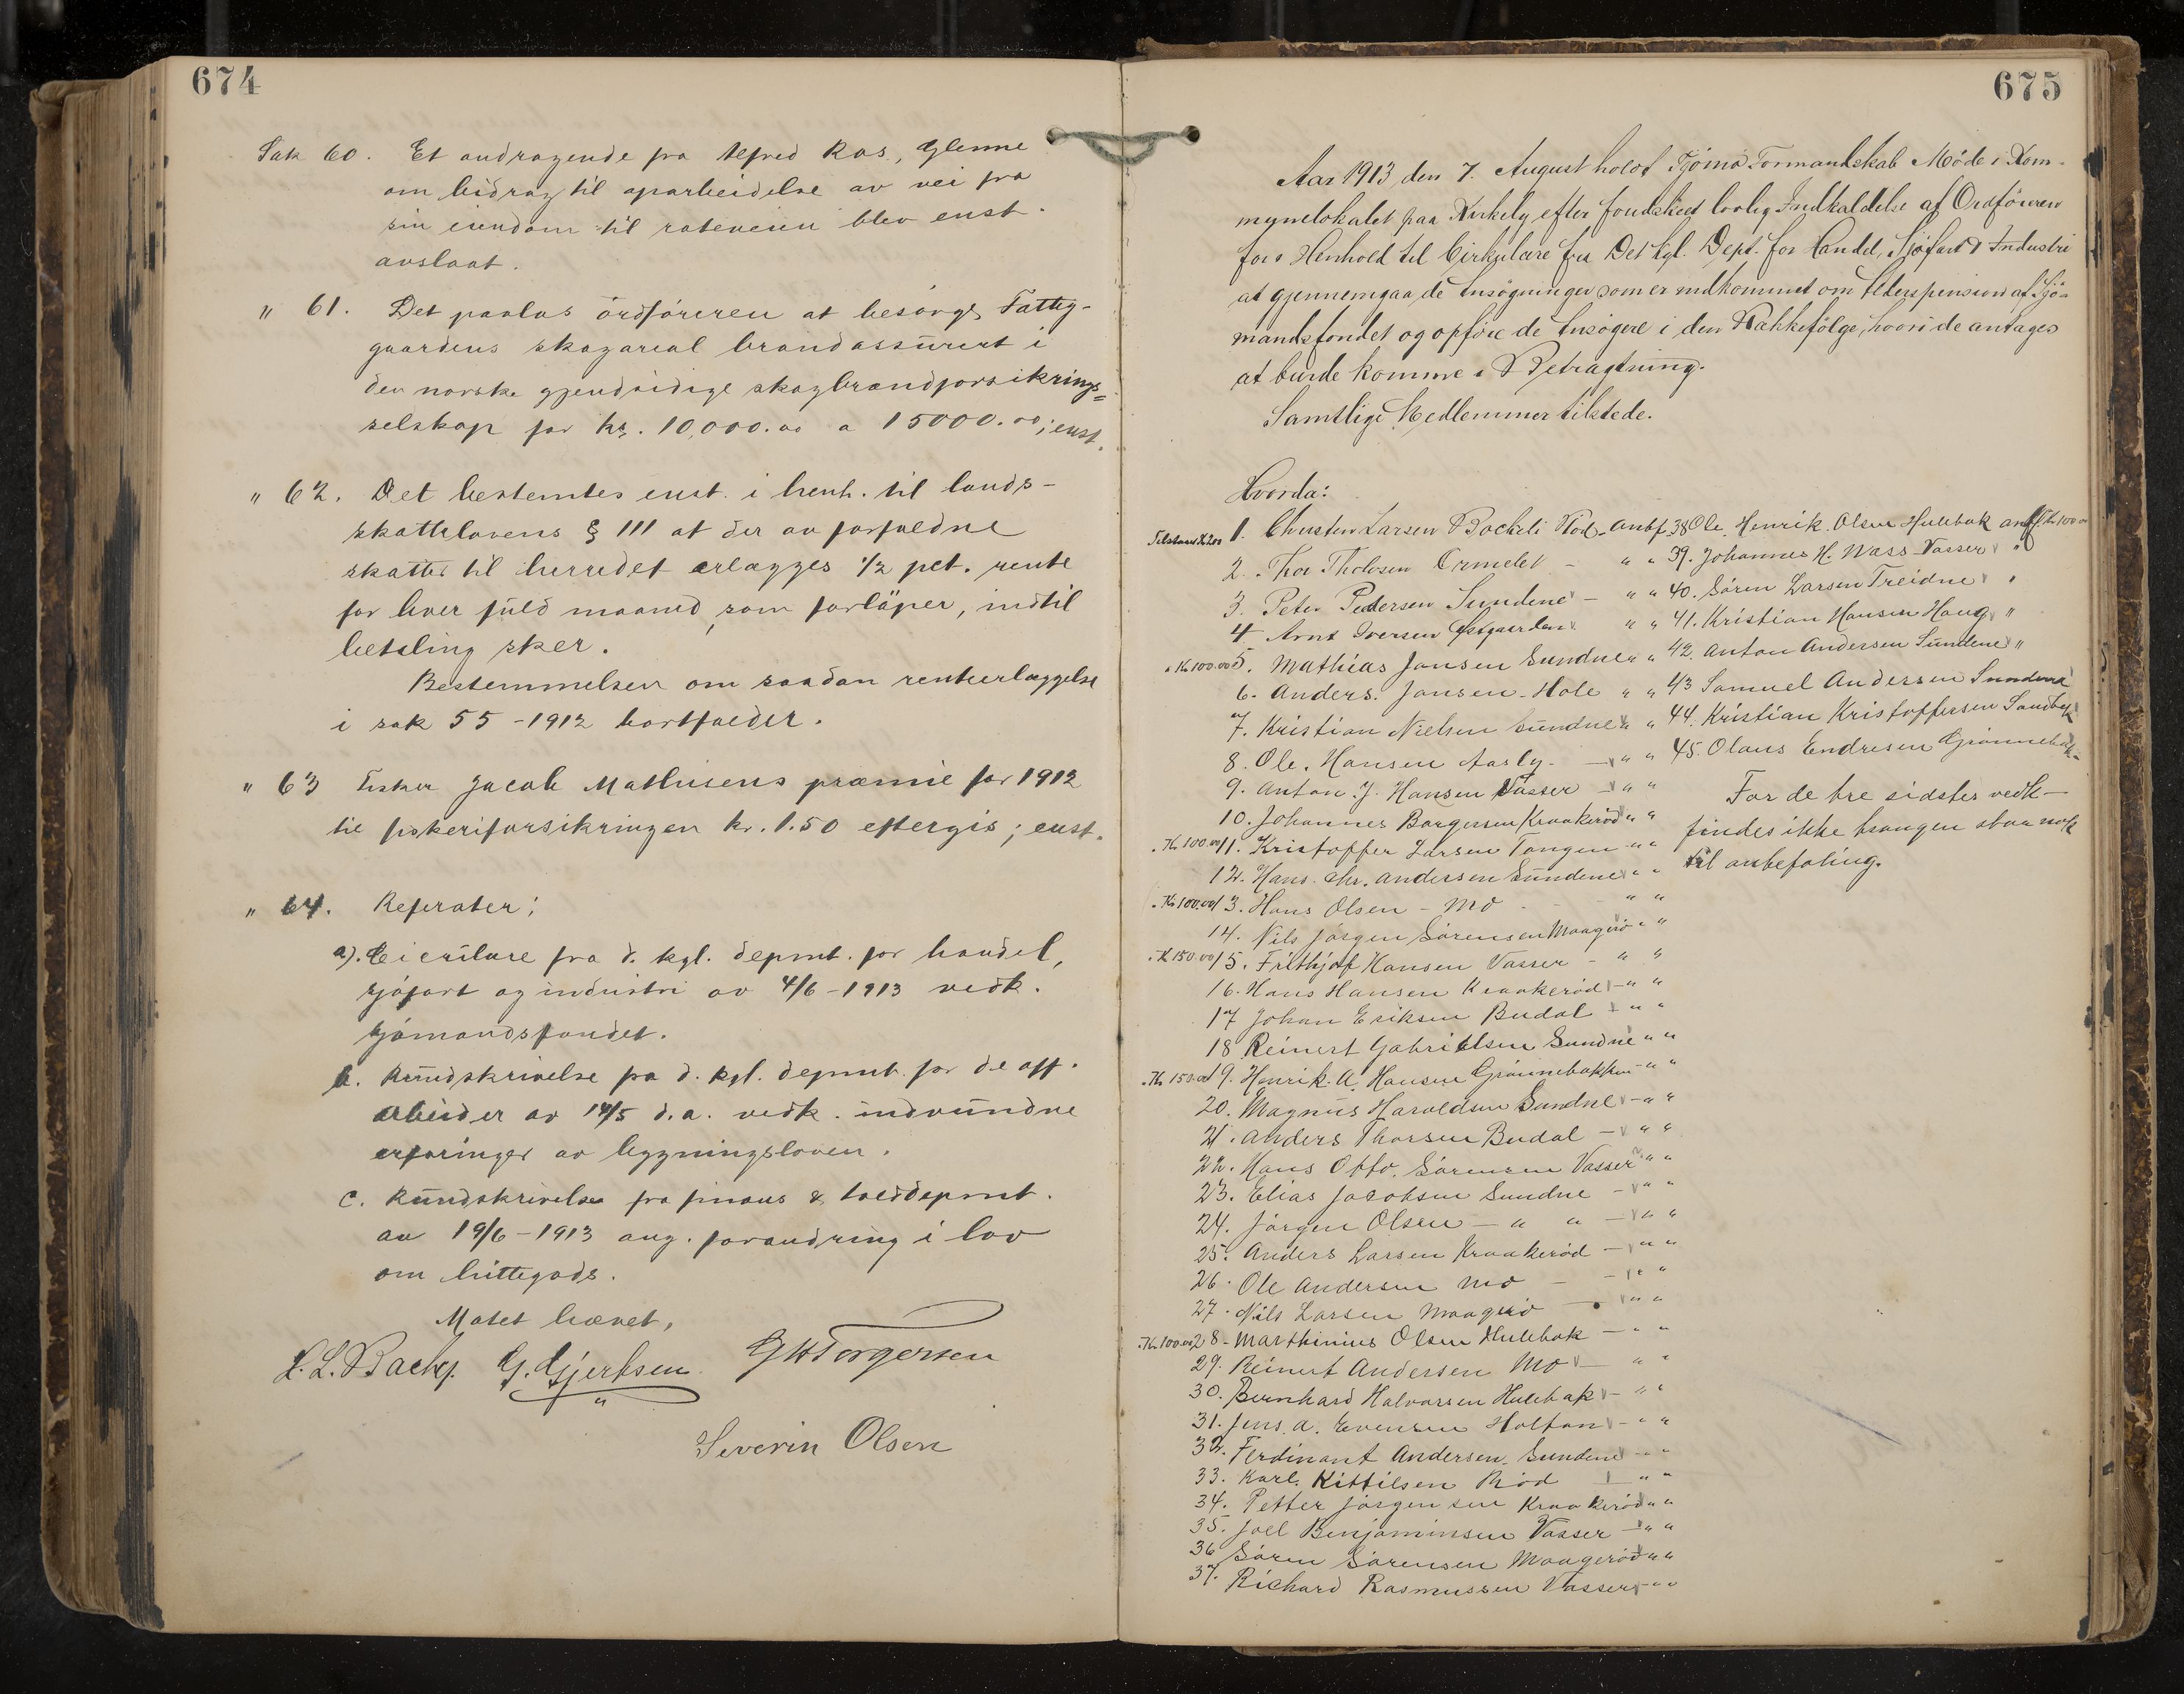 674
Sak 60. Et andragende fra Alfred Ras, Glenne
om bidrag til oparbeidelse av vei fra
sin eiendom til roteveien blev enst.
avslaat.
" 61. Det paalas ordføreren at besørge Fattig-
gaardens skogareal brandassurert i
den norske gjensidige skogbrandforsikrings-
selskap for kr. 10,000.00 a 15000.00; enst.
" 62. Det bestemtes enst. i henh. til lands-
skattelovens § 111 at der av forfaldne
skatter til herredet erlægges 1/2 pct. rente
for hver fuld maaned, som forløper, indtil
betaling sker.
Bestemmelsen om saadan renteerlæggelse
i sak 55 - 1912 bortfalder.
" 63 Fisker Jacob Mathisens præmie for 1912
til fiskeriforsikringen kr. 1.50 eftergis; enst.
" 64. Referater;
a). Cirkulære fra d. kgl. depmt. for handel,
sjøfart og industri av 4/6 - 1913 vedk.
sjømandsfondet.
b. Rundskrivelse fra d. kgl. depmt. for de off.
arbeider av 14/5 d.a. vedk. indvundne
erfaringer av bygningsloven.
c. Rundskrivelse fra finans & tolddepmt.
av 19/6 - 1913 ang. forandring i lov
om hittegods.
Møtet hævet,
L. L. Backe. G. Gjertsen G H Torgersen
Severin Olsen
675
Aar 1913 den 7. August holdt Tjømø Formandskab Møde i Kom-
munelokalet paa Kirkely efter forudskeet lovlig Indkaldelse af Ordføreren
for i Henhold til Cirkulære fra Det kgl. Dept. for Handel, Sjøfart & Industri
at gjennemgaa de Ansøgninger som er indkommet om Alderspension af Sjø-
mandsfondet og opføre de Ansøgere i den Rækkefølge, hvori de antages
at burde komme i Betragtning.
Samtlige Medlemmer tilstede.
Hvorda:
Tilstaaes K 200 1. Christen Larsen Rød anbf. 38 Ole Henrik Olsen Hulebak anbf. Kr 100.00
2. Thor Tholvsen Ormelet - " " 39. Johannes H. Næss Vasser "
3. Peter Pedersen Sundene - " " 40. Søren Larsen Treidene "
4 Arnt Iversen Østgaarden " " 41. Kristian Hansen Haug "
" Kr 100.00 5. Mathias Jansen Sundene " " 42. Anton Andersen Sundene "
6. Anders Jansen Hole " " 43 Samuel Andersen Sundene
7. Kristian Nielsen Sundene " " 44. Kristian Kristoffersen Sandbek
8. Ole Hansen Aasly - " " 45. Olaus Endresen Grønnebak
9. Anton J. Hansen Vasser - " " For de tre sidstes vedk-
10. Johannes Borgersen Kraakerød " " findes ikke trangen stor nok
" Kr 100.00 11. Kristoffer Larsen Tangen " " til anbefaling.
12. Hans Chr. Andersen Sundene " "
" Kr 100.00 13. Hans Olsen - Mo - " "
14. Nils Jørgen Sørensen Maagerø " "
" K 150.00 15. Frithjof Hansen Vasser - " "
16. Hans Hansen Kraakerød - " "
17 Johan Eriksen Budal - " "
18 Reinert Gabrielsen Sundne " "
" Kr 150.00 19. Henrik A. Hansen Grønnebakken - " "
20. Magnus Haraldsen Sundne - " "
21. Anders Thorsen Budal - " "
22. Hans Otto Sørensen Vasser " "
23. Elias Jacobsen Sundne - " "
24. Jørgen Olsen - " " - " "
25. Anders Larsen Kraakerød - " "
26. Ole Andersen Mo - - " "
27. Nils Larsen Maagerø - " "
" Kr 100.00 28 - Marthinius Olsen Hulebak - " "
29. Reinert Andersen Mo - " "
30. Bernhard Halvorsen Hulebak - " "
31. Jens A. Evensen Holtan - " "
32. Ferdinant Andersen Sundene - " "
33. Karl Kittilsen Rød " "
34. Petter Jørgensen Kraakerød " "
35. Joel Benjaminsen Vasser - " "
36 Søren Sørensen Maagerø " "
37. Richard Rasmussen Vasser " "